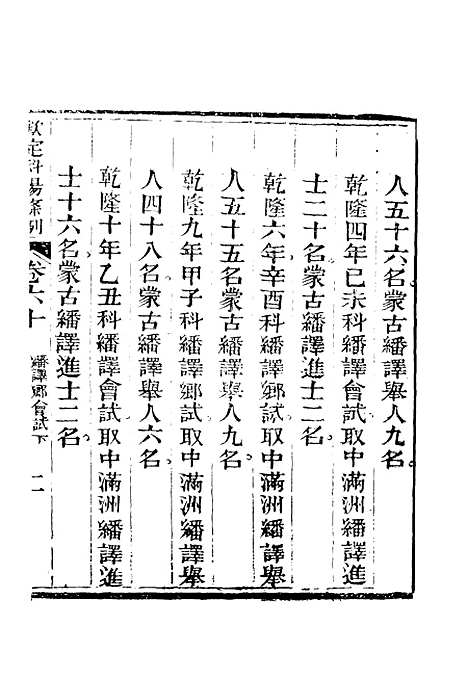 人五十六名蒙古繙譯舉人九名
乾隆四年己未科繙譯會試取中滿洲繙譯進
士二十名蒙古繙譯進士二名
乾隆六年辛酉科繙譯鄉試取中滿洲繙譯舉
人五十五名蒙古繙譯舉人九名
乾隆九年甲子科繙譯鄉試取中滿洲繙譯舉
人四十八名蒙古繙譯舉人六名
乾隆十年乙丑科繙譯會試取中滿洲繙譯進
士十六名蒙古繙譯進士二名
欽定科場條例 卷六十 繙譯鄉會試下 二